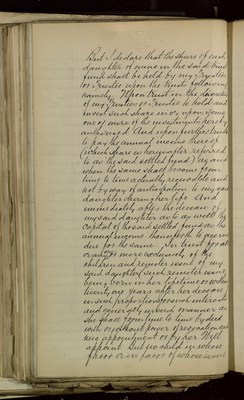 But I declare that the share of each
daughter of mine in the said trust
fund shall be held by my Trustees
or Trustee upon the trusts following
namely Upon trust in the
of my Trustees or Trustee to hold and
invest such share in or upon any
one or more of the investments hereby
authorised And upon further trust
to pay the annual income thereof
(which share is hereinafter referred
to as the said settled fund) as and
when the same shall become from
time to time actually receivable and
not by way of anticipation to my said
daughter during her life And
immediately after the decease of
my said daughter as to as well the
capital of the said settled fund as the
annual income thenceforth to accrue
due for the same In trust for all
or any or more exclusively of the
children and remoter issue of my
said daughter such remoter issue
being born in her lifetime or within
twenty one years after her decease
in such proportions such interests
and generally in such manner as
she shall from time to time by deed
with or without power of revocation and
new appointment or by her Will
appoint But no child in whose
favor or in favor of whose issue